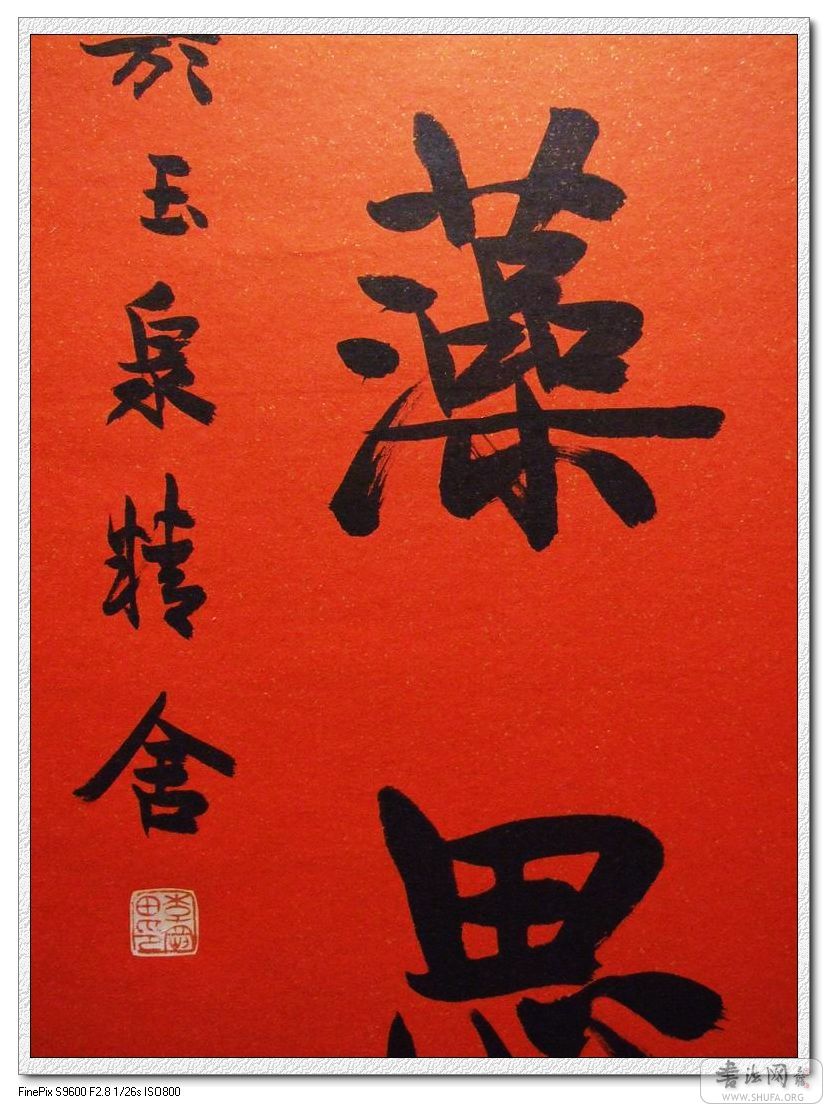 藻思
於玉泉精舍
FinePix S9600 F2.8 1/26s ISO800
書法网
WWW.SHUFA.ORG